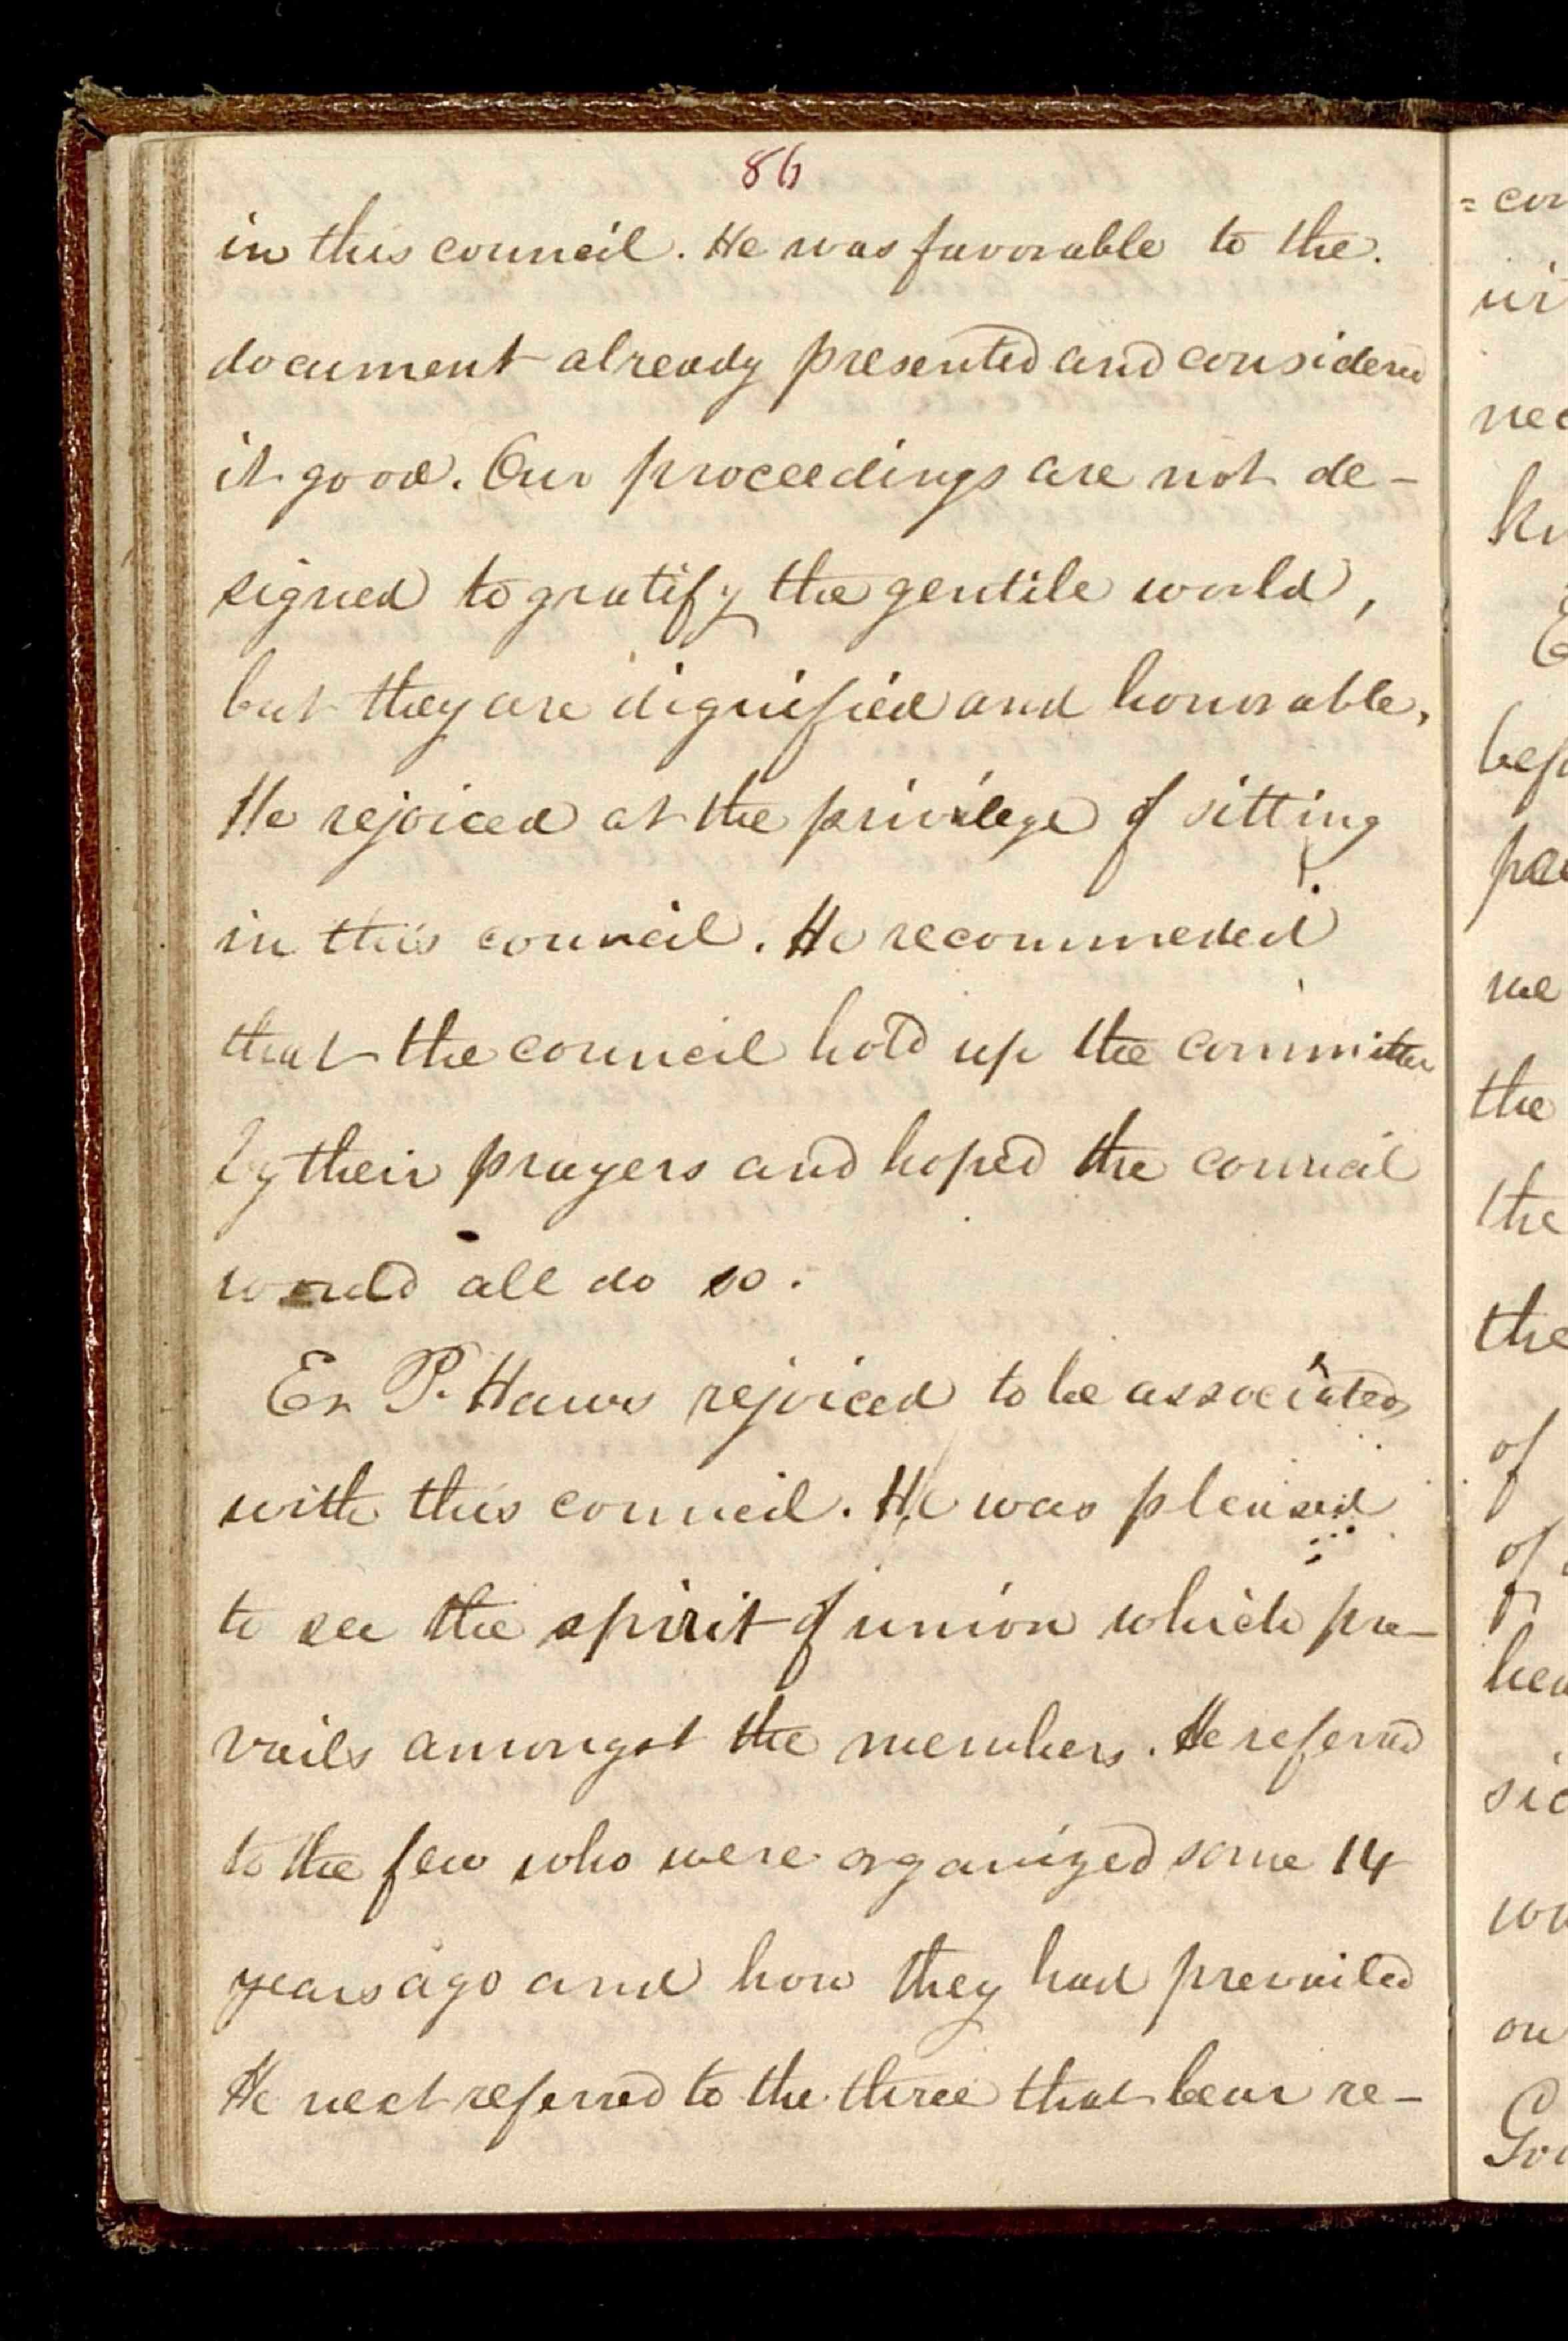 86
in this council. He was favorable to the
document already presented and considered
it good. Our proceedings are not de-
signed to gratify the gentile world,
but they are dignified and honorable.
He rejoiced at the privilege of sitting
in this council. He recommeded
that the council hold up the committee
by their prayers and hoped the council
would all do so.
Er. P. Haws rejoiced to be associated
with this council. He was pleased
to see the spirit of union which pre-
vails amongst the members. He referred
to the few who were organized some 14
years ago and how they had prevailed
He next referred to the three that bear re-
= con
wi
nec
kn
E
bef
pa
me
the
the
the
of
of
hea
sid
wo
ou
Go